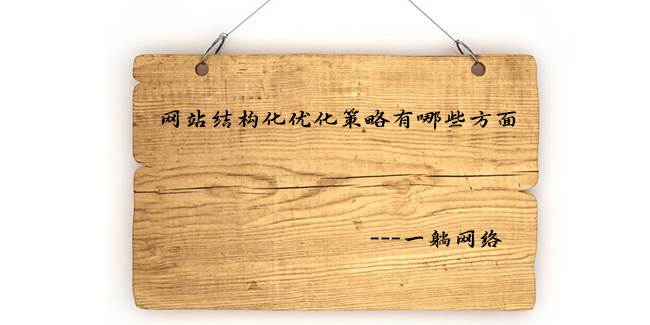 网站结构化优化策略有哪些方面
---一躺网络